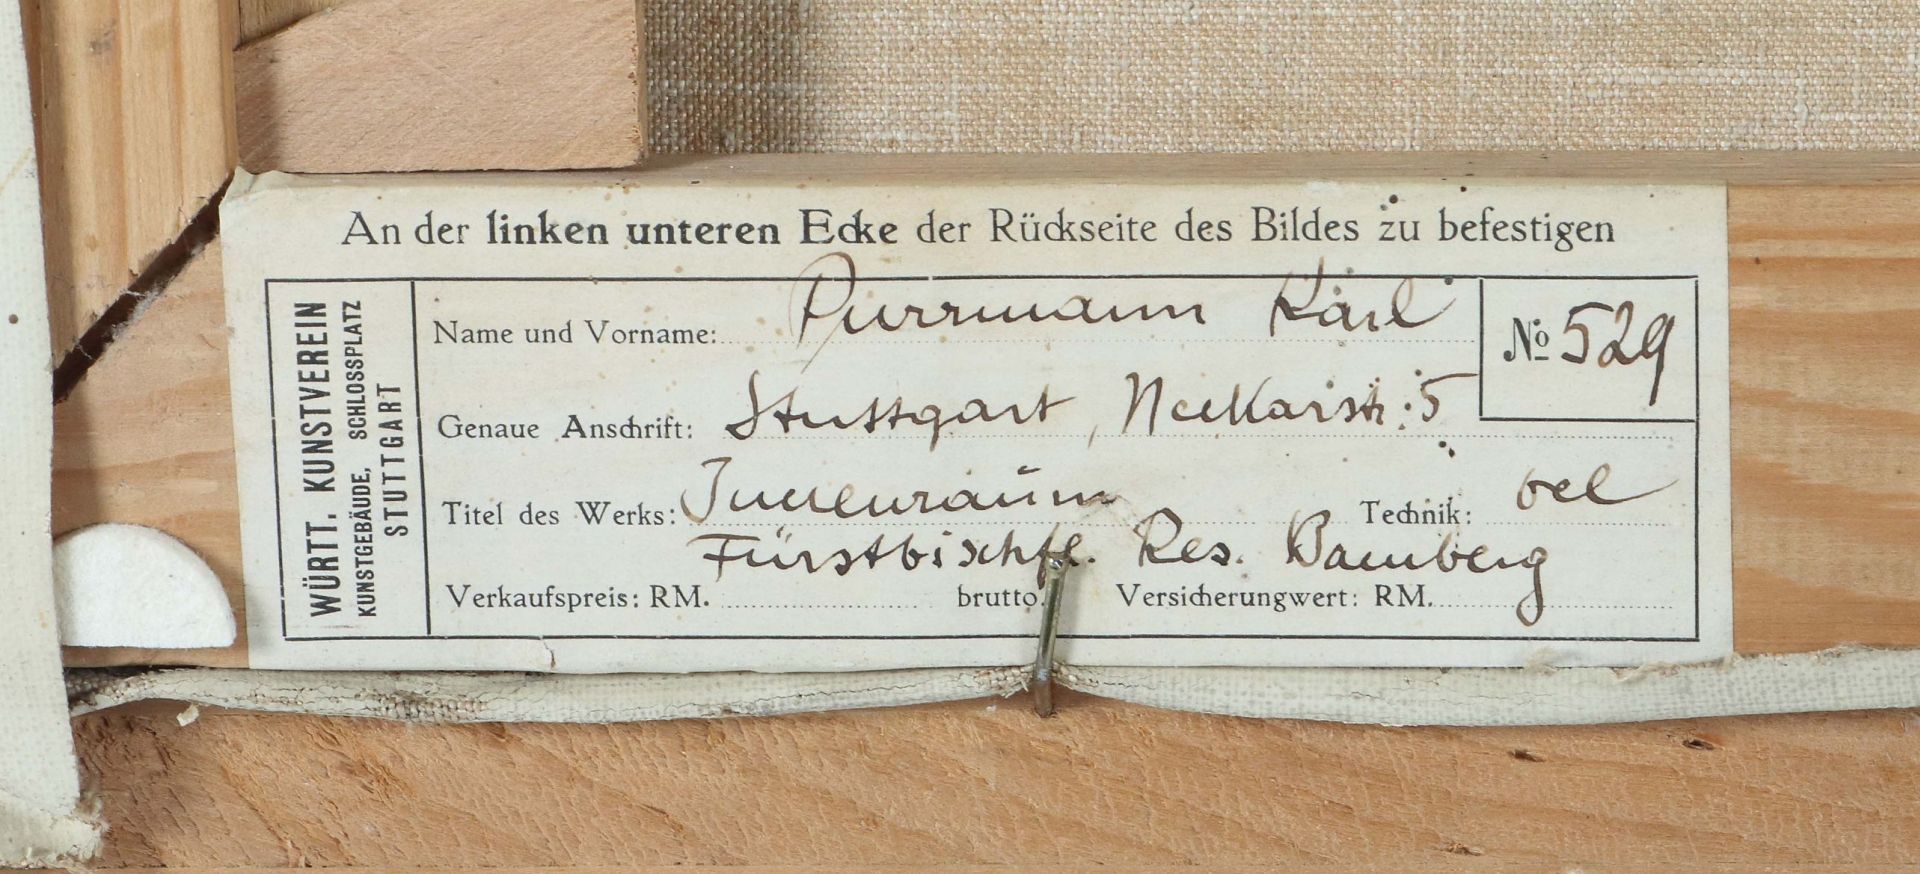 An der linken unteren Ecke der Rückseite des Bildes zu befestigen
WÜRTT. KUNSTVEREIN
KUNSTGEBÄUDE, SCHLOSSPLATZ
STUTTGART
Name und Vorname: Purrmann Karl
No 529
Genaue Anschrift: Stuttgart, Neckarstr. 5
Titel des Werks: Innenraum Technik: Oel
Fürstbischfl. Res. Bamberg
Verkaufspreis: RM. brutto. Versicherungwert: RM.